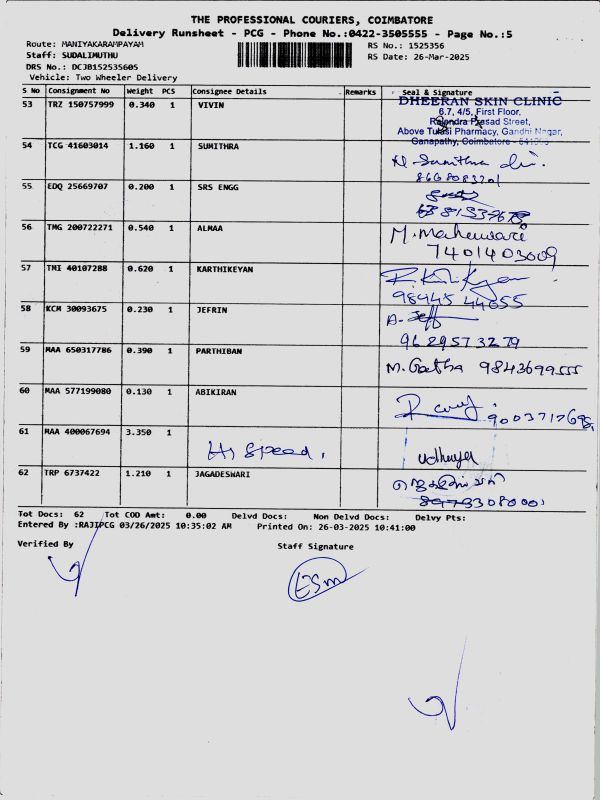 THE PROFESSIONAL COURIERS, COIMBATORE
Delivery Runsheet - PCG - Phone No.:0422-3505555 - Page No.:5
Route: MANIYAKARAMPAYAM
RS No.: 1525356
Staff: SUDALIMUTHU
RS Date: 26-Mar-2025
DRS No.: DCJB152535605
Vehicle: Two Wheeler Delivery
S No Consignment No Weight PCS Consignee Details Remarks Seal & Signature
53 TRZ 150757999 0.340 1 VIVIN
DHEERAN SKIN CLINIC
6,7, 4/5, First Floor,
Rajendra Prasad Street,
Above Tulasi Pharmacy, Gandhi Nagar,
Ganapathy, Coimbatore
54 TCG 41603014 1.160 1 SUMITHRA
N. Sumithra
8668083201
55 EDQ 25669707 0.200 1 SRS ENGG
56 TMG 200722271 0.540 1 ALMAA
M. Maheswari
7401403009
57 TMI 40107288 0.620 1 KARTHIKEYAN
98945 44655
58 KCM 30093675 0.230 1 JEFRIN
A. Jeff
9629573279
59 MAA 650317786 0.390 1 PARTHIBAN
M. Geetha 9843699555
60 MAA 577199080 0.130 1 ABIKIRAN
61 MAA 400067694 3.350 1
Hi Speed.
udhaya
62 TRP 6737422 1.210 1 JAGADESWARI
Tot Docs: 62 Tot COD Amt: 0.00 Delvd Docs: Non Delvd Docs: Delvy Pts:
Entered By :RAJIPCG 03/26/2025 10:35:02 AM Printed On: 26-03-2025 10:41:00
Verified By
Staff Signature
ESM